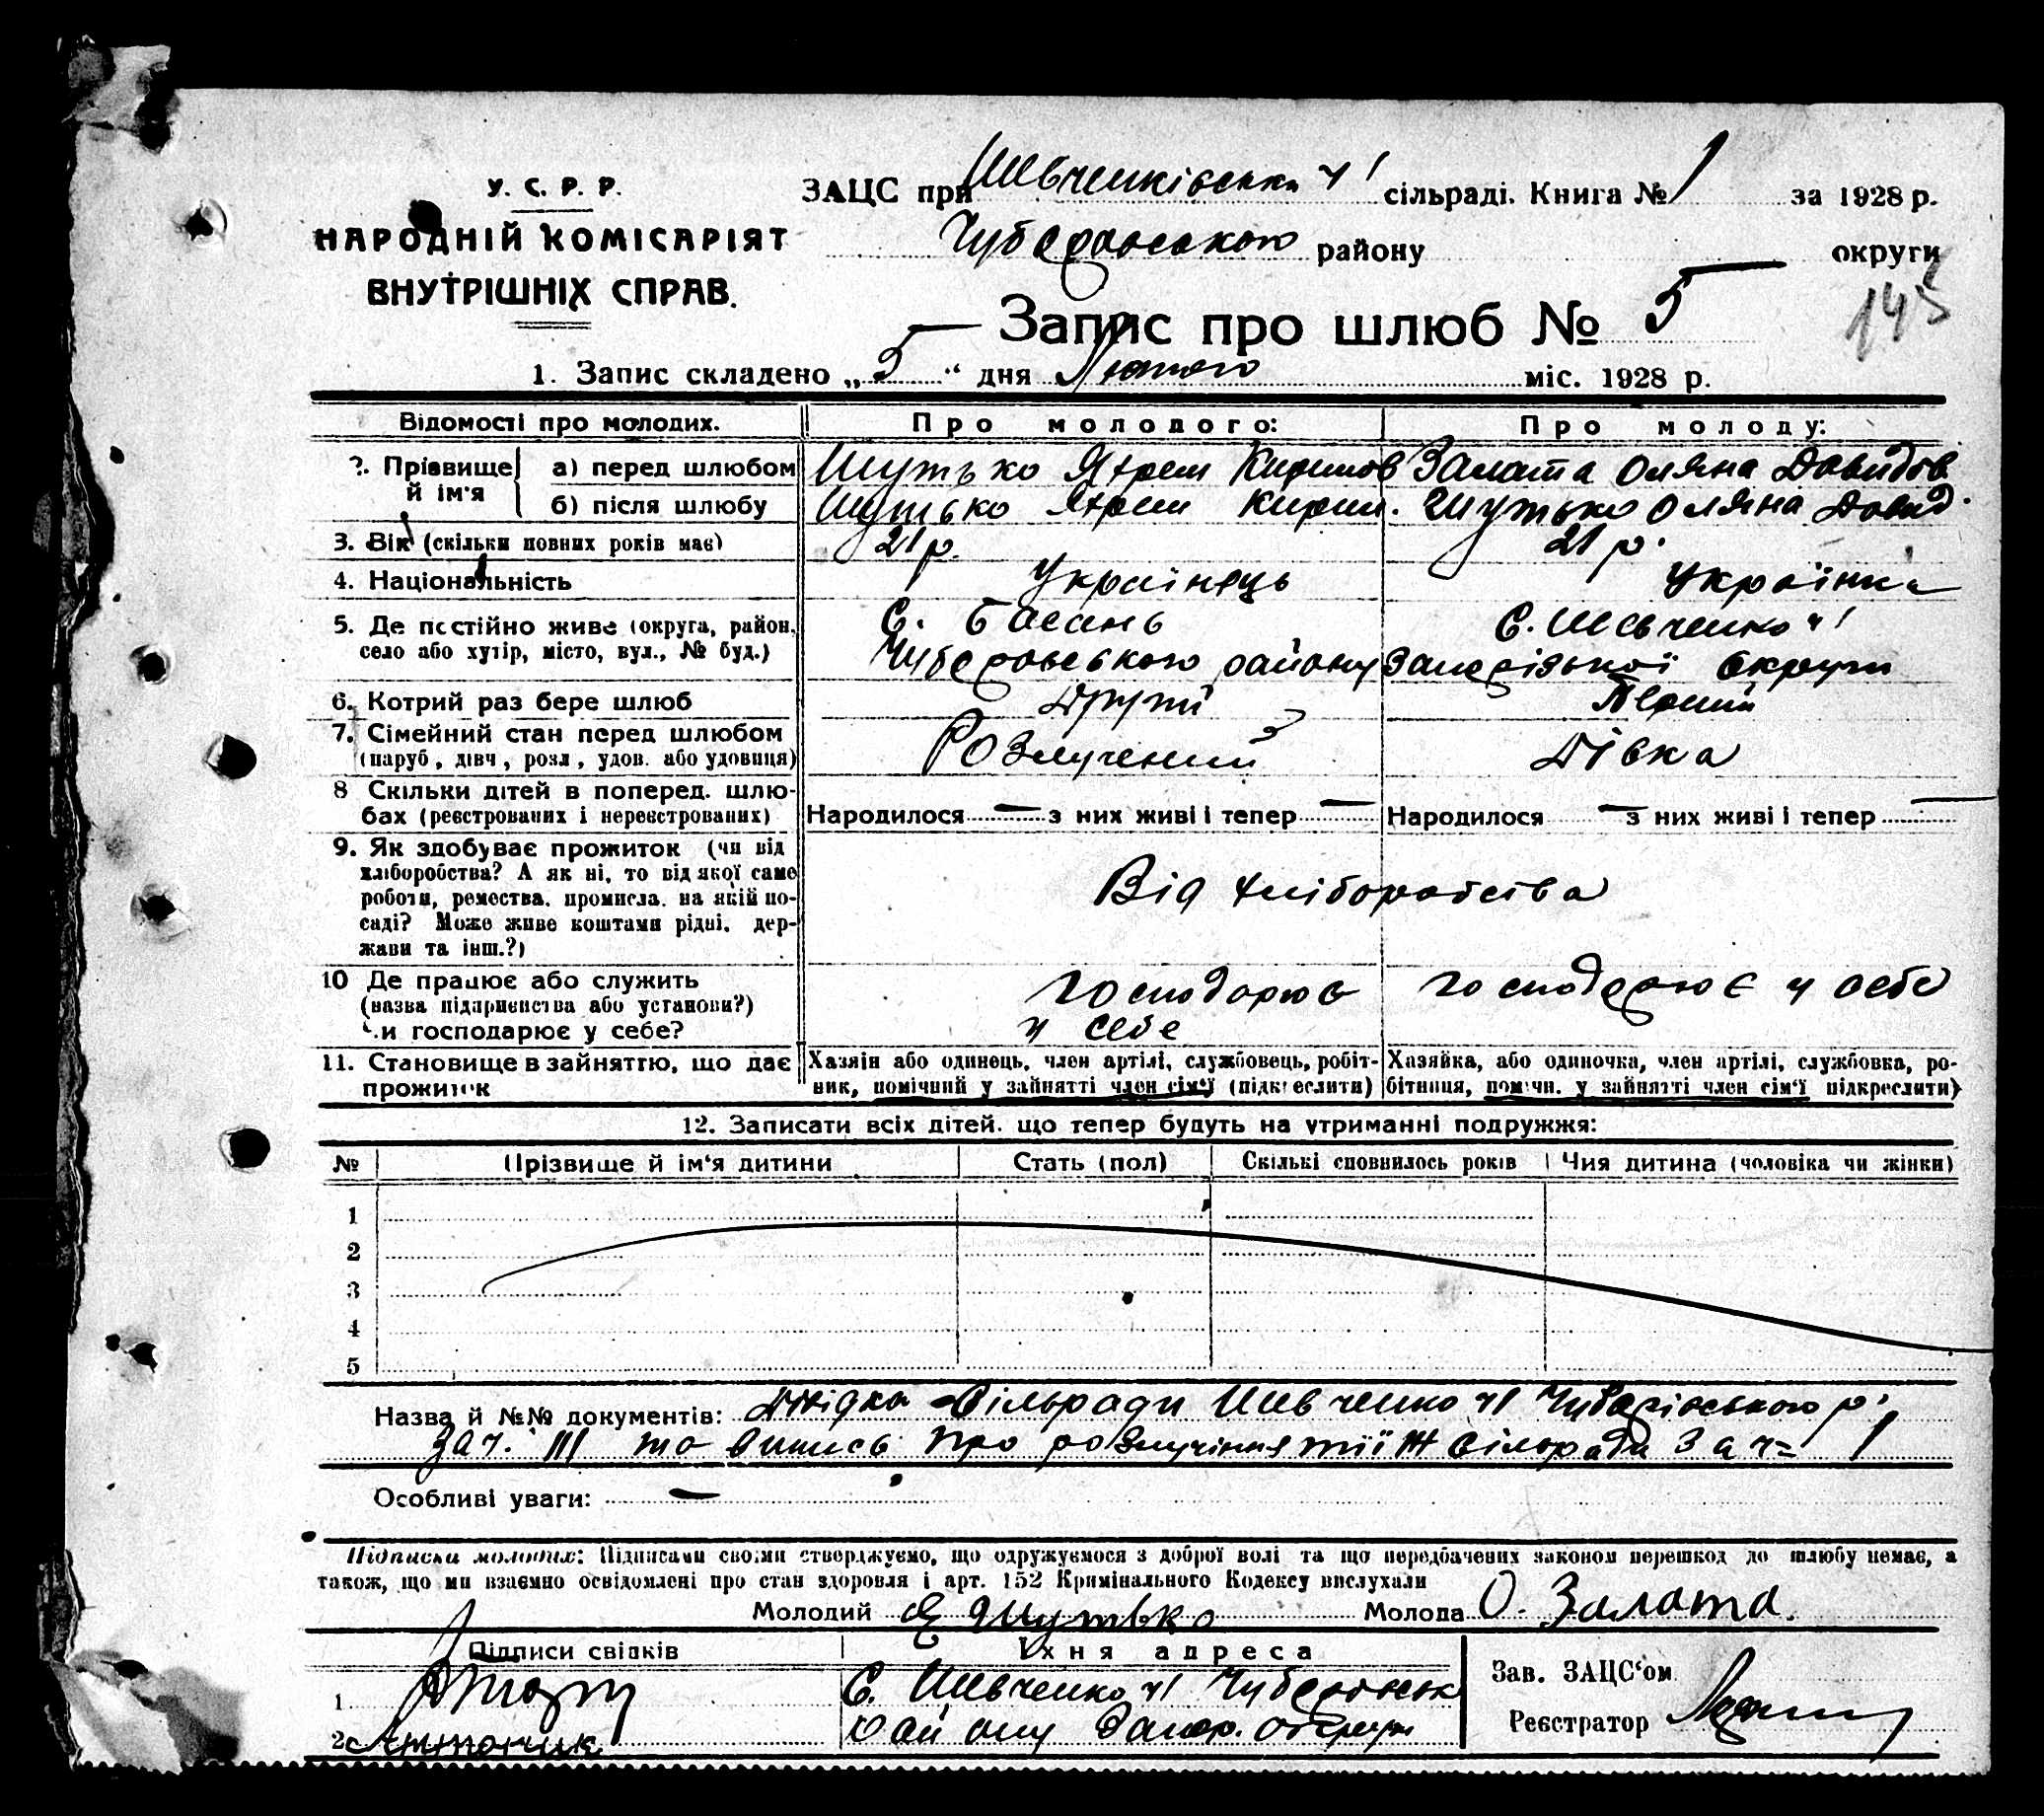 У. С. Р. Р.
НАРОДНІЙ КОМІСАРІЯТ
ВНУТРІШНІХ СПРАВ.
ЗАЦС при Шевченківська ч 1 сільраді. Книга № 1 за 1928 р.
Чубарівського району округи
145
Запис про шлюб № 5
1. Запис складено „5“ дня Лютого міс. 1928 р.
Відомості про молодих. Про молодого: Про молоду:
2. Прізвище й ім'я а) перед шлюбом Шутько Яхрем Кирилов Залата Оляна Давидов
б) після шлюбу Шутько Яхрем Кирил. Шутько Оляна Давид.
3. Вік (скільки повних років має) 21 р. 21 р.
4. Національність Українець Українка
5. Де постійно живе (округа, район, село або хутір, місто, вул., № буд.) С. Басань С. Шевченко ч 1
Чубарівського району Запорізької округи
6. Котрий раз бере шлюб Другий Перший
7. Сімейний стан перед шлюбом (паруб., дівч., розл., удов. або удовиця) Розлучений Дівка
8 Скільки дітей в поперед. шлюбах (реєстрованих і нереєстрованих) Народилося — з них живі і тепер — Народилося — з них живі і тепер —
9. Як здобуває прожиток (чи від хліборобства? А як ні, то від якої саме роботи, ремества, промисла, на якій посаді? Може живе коштами рідні, держави та інш.?) Від хліборобства
10 Де працює або служить (назва підприємства або установи?) Чи господарює у себе? Господарює у себе Господарює у себе
11. Становище в зайняттю, що дає прожиток Хазяїн або одинець, член артілі, службовець, робітник, помічний у зайнятті член сім'ї (підкреслити) Хазяйка, або одиночка, член артілі, службовка, робітниця, помічн. у зайнятті член сім'ї підкреслити)
12. Записати всіх дітей, що тепер будуть на утриманні подружжя:
№ Прізвище й ім'я дитини Стать (пол) Скількі сповнилось років Чия дитина (чоловіка чи жінки)
1
2
3
4
5
Назва й №№ документів: Довідка Сільради Шевченко ч 1 Чубарівського р.
за ч. III та випись про розлучіння тії ж сільради за ч= 1
Особливі уваги: —
Підписка молодих: Підписами своїми стверджуємо, що одружуємося з доброї волі та що передбачених законом перешкод до шлюбу немає, а
також, що ми взаємно освідомлені про стан здоровля і арт. 152 Кримінального Кодексу вислухали
Молодий Шутько Молода О. Залата.
Підписи свідків Їхня адреса
1 С. Шевченко ч 1 Чубарівськ
2 району Запор. округи
Зав. ЗАЦС'ом
Реєстратор